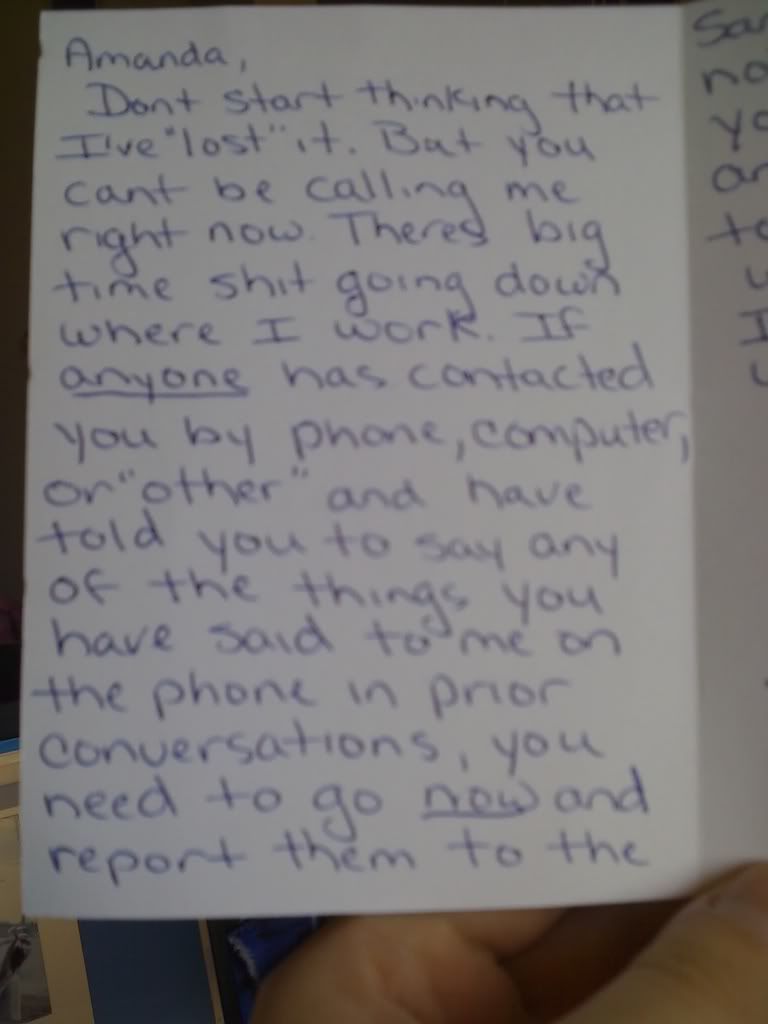 Amanda,
Dont start thinking that
I've "lost" it. But you
cant be calling me
right now. Theres big
time shit going down
where I work. If
anyone has contacted
you by phone, computer,
or "other" and have
told you to say any
of the things you
have said to me on
the phone in prior
conversations, you
need to go now and
report them to the